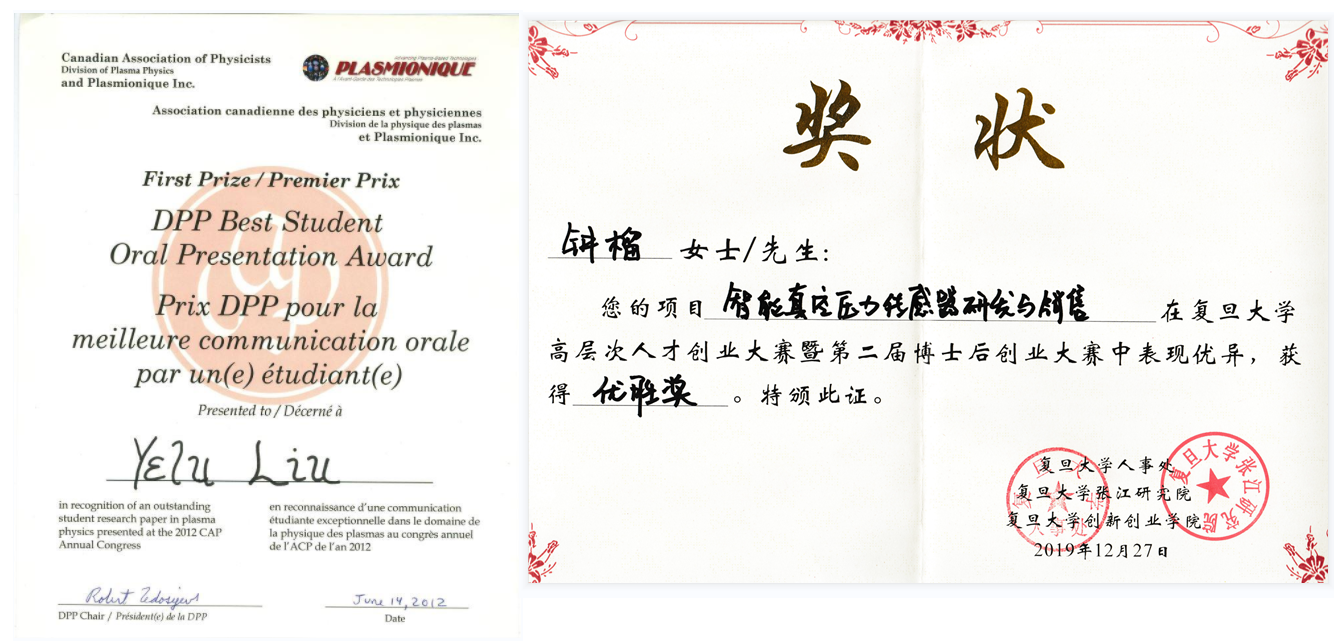 Canadian Association of Physicists
Division of Plasma Physics
and Plasmionique Inc.
Advancing Plasma-Based Technologies
PLASMIONIQUE
À l'Avant-Garde des Technologies Plasmas
Association canadienne des physiciens et physiciennes
Division de la physique des plasmas
et Plasmionique Inc.
First Prize / Premier Prix
DPP Best Student
Oral Presentation Award
Prix DPP pour la
meilleure communication orale
par un(e) étudiant(e)
Presented to / Décerné à
Yelu Liu
in recognition of an outstanding
student research paper in plasma
physics presented at the 2012 CAP
Annual Congress
en reconnaissance d'une communication
étudiante exceptionnelle dans le domaine de
la physique des plasmas au congrès annuel
de l'ACP de l'an 2012
Robert
June 14, 2012
DPP Chair / Président(e) de la DPP
Date
奖 状
钟榴 女士/先生:
您的项目 智能真空压力传感器研发与销售 在复旦大学
高层次人才创业大赛暨第二届博士后创业大赛中表现优异，获
得 优胜奖 。特颁此证。
复旦大学人事处
复旦大学张江研究院
复旦大学创新创业学院
2019年12月27日
复旦大学张江研究院
复旦大学
人事处